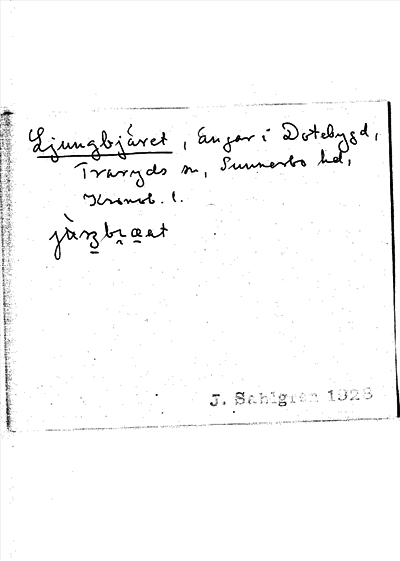 Ljungbjäret, ängar i Dotebygd,
Traryds sn, Sunnerbo hd,
Kronob. l.
J. Sahlgren 1928